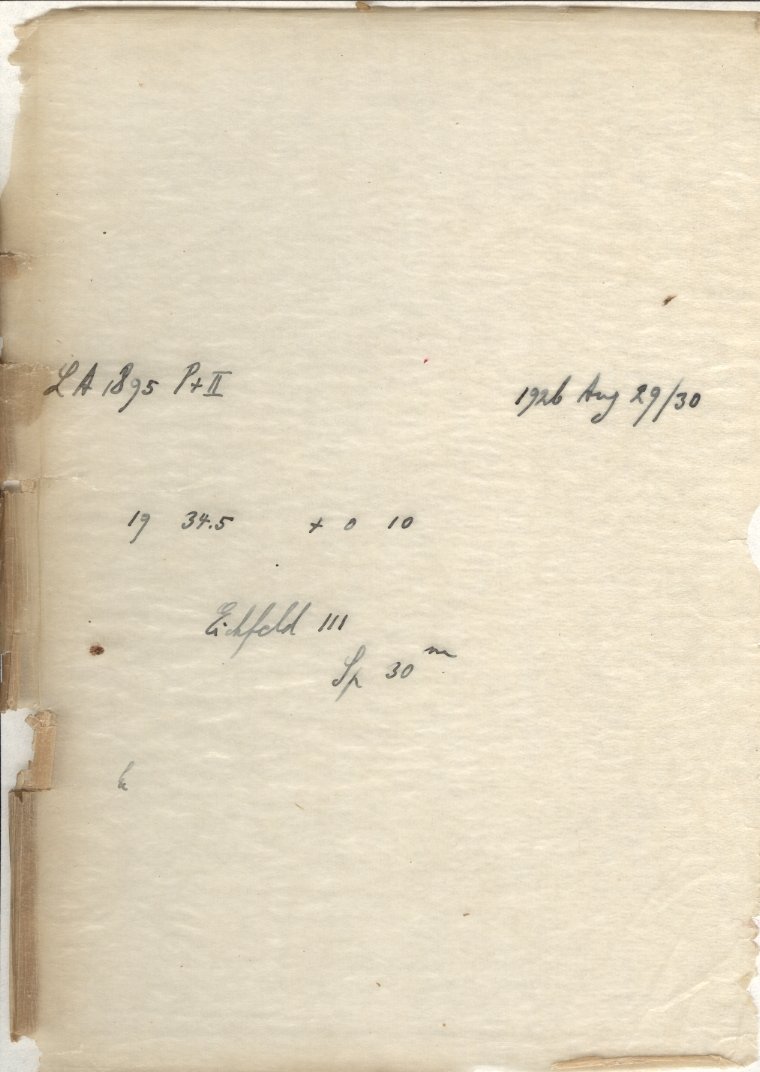 LA 1895 P+II 1926 Aug 29/30
19 34.5 + 0 10
Eichfeld III
Sp 30 m